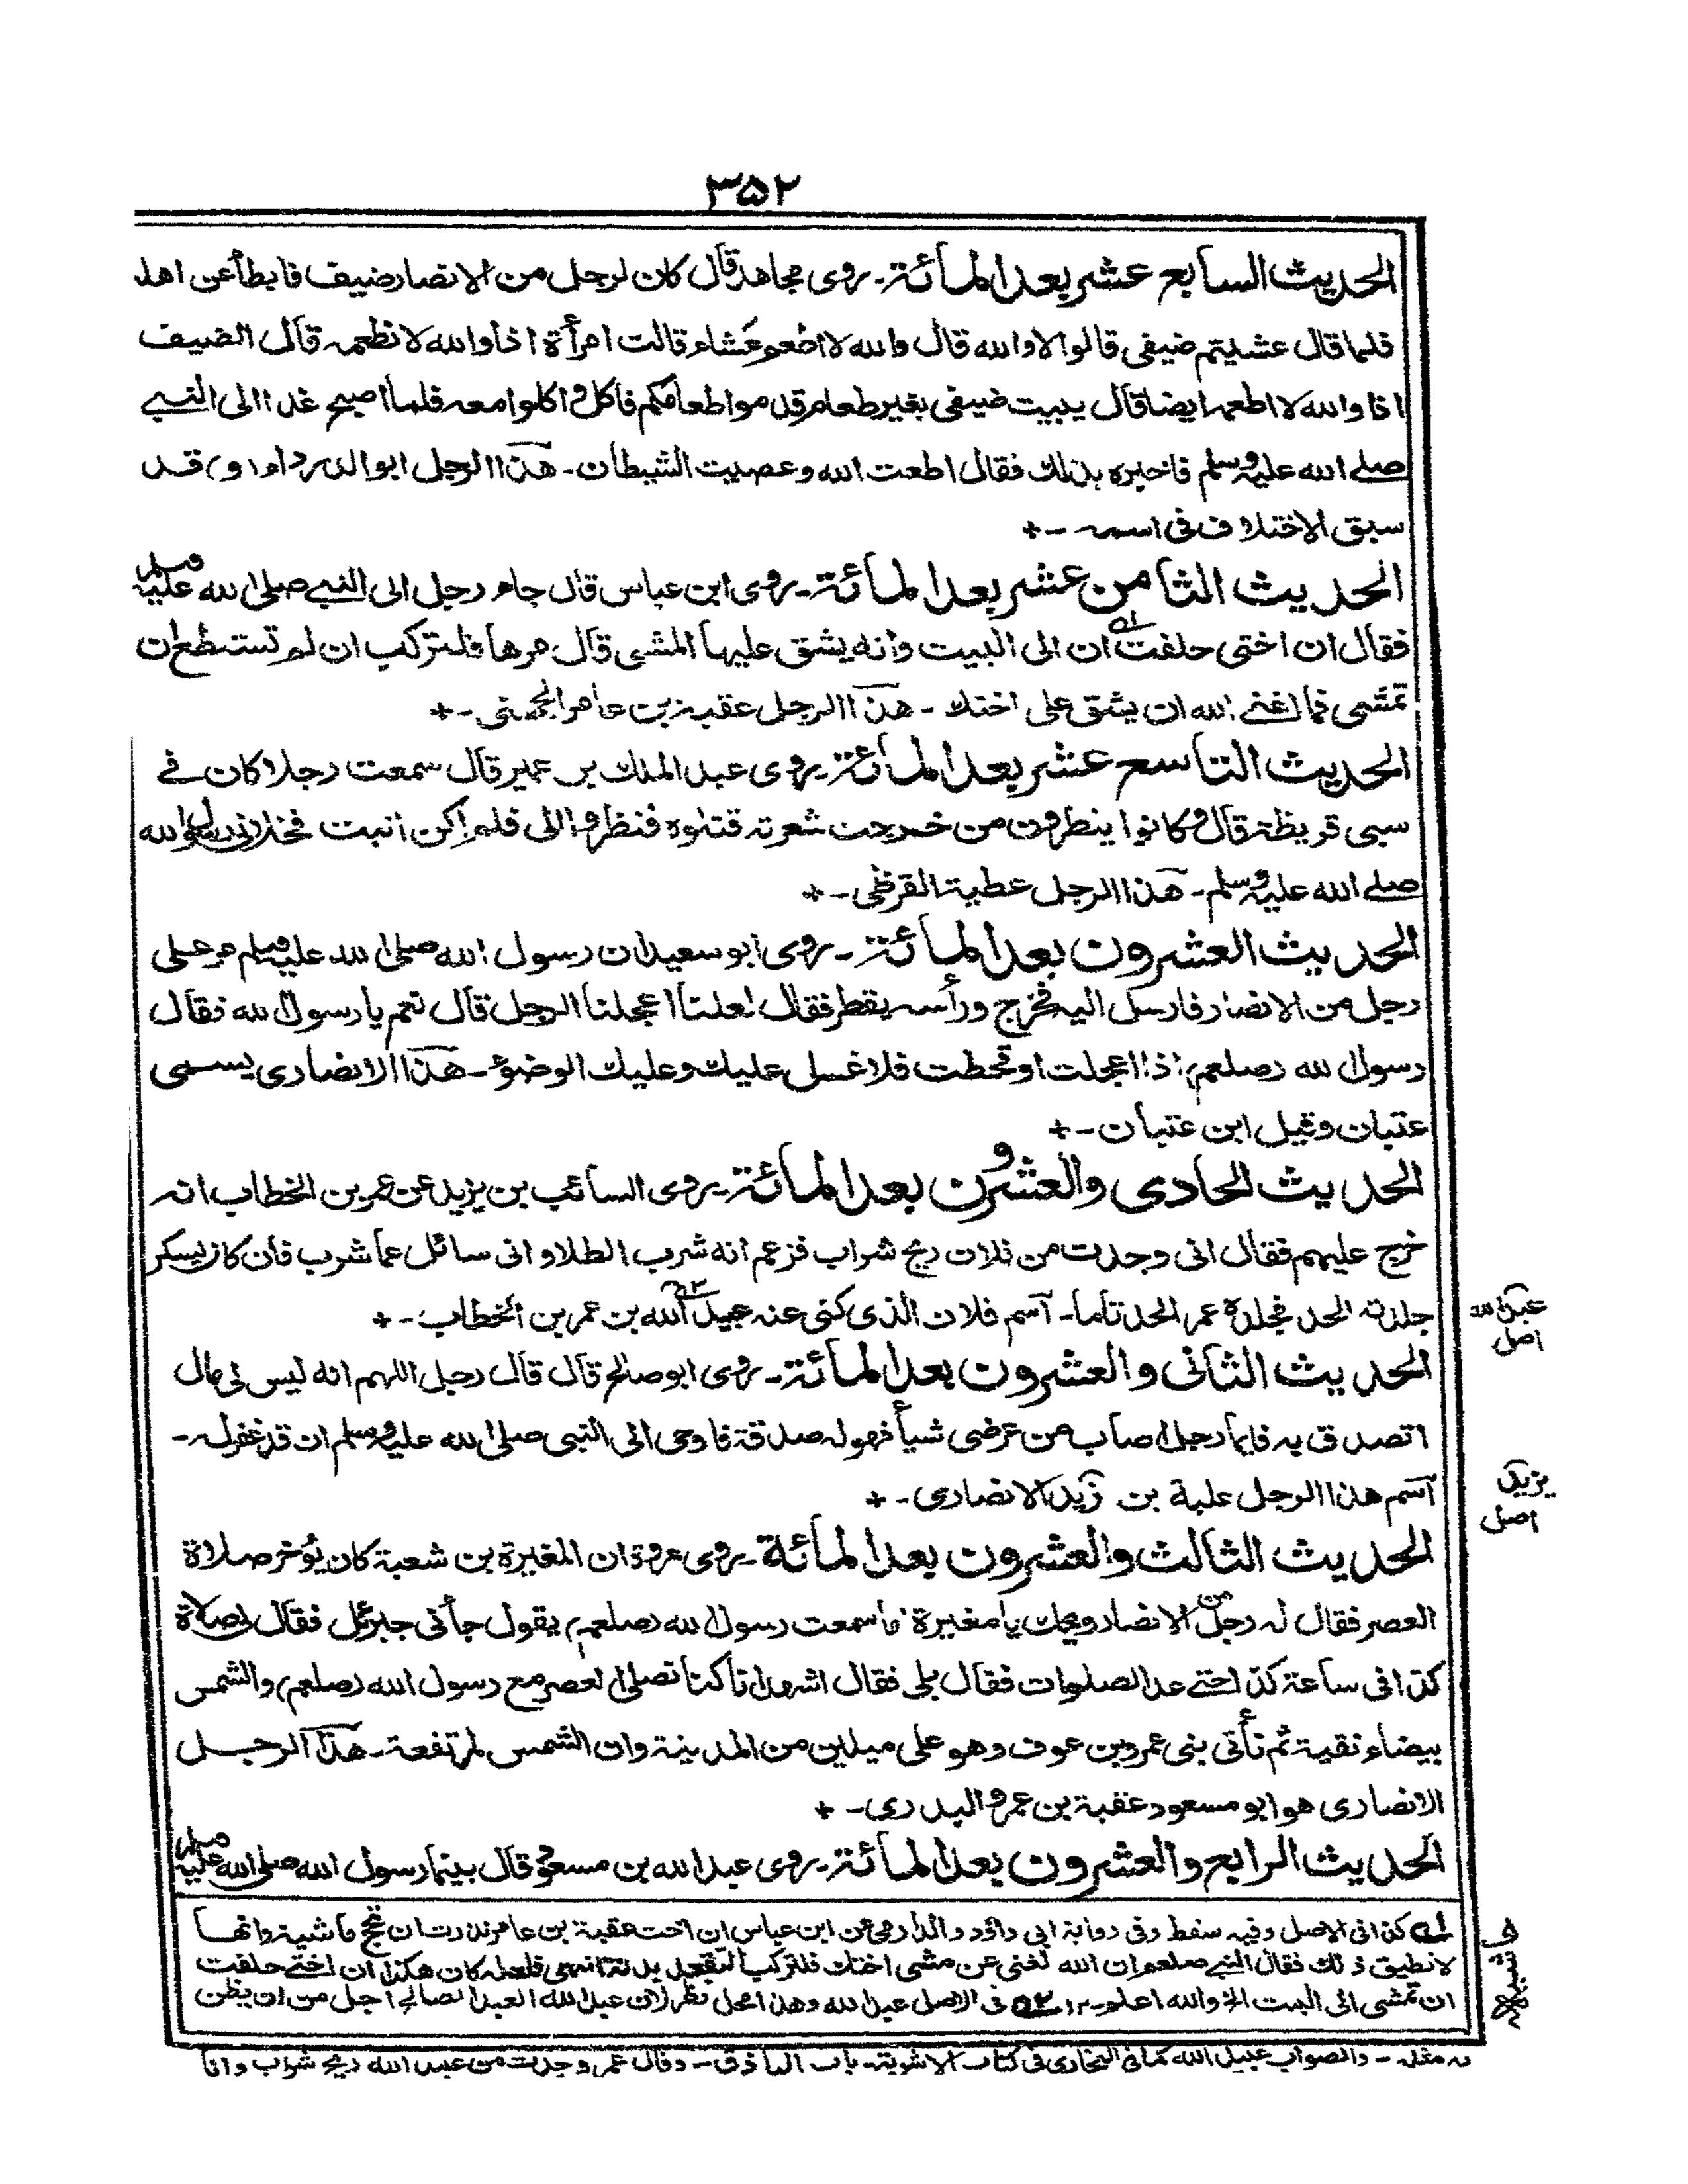 ٣٥٢
الحديث السابع عشر بعد المائة ـ روى مجاهد قال كان لرجل من الانصار ضيف فابطأ عن اهله
فلما قال عشيتم ضيفى قالوا لا والله قال والله لا اطعم عشاء قالت امرأة اذا والله لا نطعمه قال الضيف
اذا والله لا اطعمه ايضا قال يبيت ضيفى بغير طعام قدموا طعامكم فاكل و اكلوا معه فلما اصبح غدا الى النبى
صلے الله عليه وسلم فاخبره بذلك فقال اطعت الله وعصيت الشيطان ـ هذا الرجل ابو الدرداء (و) قد
سبق الاختلاف فى اسمه ـ +
الحديث الثامن عشر بعد المائة ـ روى ابن عباس قال جاء رجل الى النبى صلى الله عليه وسلم
فقال ان اختى حلفت ان الى البيت وانه يشق عليها المشى قال مرها فلتركب ان لم تستطع ان
تمشى فما اغنى الله ان يشق على اختك ـ هذا الرجل عقبة بن عامر الجهنى ـ +
الحديث التاسع عشر بعد المائة ـ روى عبد الملك بن عمير قال سمعت رجلا كان فى
سبى قريظة قال وكانوا ينظرون من خرجت شعرته قتلوه فنظروا الى فلم اكن انبت فخلانى رسول الله
صلے الله عليه وسلم ـ هذا الرجل عطية القرظى ـ +
الحديث العشرون بعد المائة ـ روى ابو سعيد ان رسول الله صلى الله عليه وسلم مر على
رجل من الانصار فارسل اليه فخرج ورأسه يقطر فقال لعلنا اعجلنا الرجل قال نعم يا رسول الله فقال
رسول الله (صلعم) اذا اعجلت او قحطت فلا غسل عليك وعليك الوضوء ـ هذا الانصارى يسمى
عتبان وقيل ابن عتبان ـ +
الحديث الحادى والعشرون بعد المائة ـ روى السائب بن يزيد عن عمر بن الخطاب انه
خرج عليهم فقال انى وجدت من فلان ريح شراب فزعم انه شرب الطلاء وانى سائل عما شرب فان كان يسكر
جلدته الحد فجلده عمر الحد تاما ـ اسم فلان الذى كنى عنه عبيد الله بن عمر بن الخطاب ـ +
عبد الله
اصل
الحديث الثانى والعشرون بعد المائة ـ روى ابو صالح قال قال رجل اللهم انه ليس لى مال
اتصدق به فايما رجل اصاب من عرضى شيأ فهو له صدقة فاوحى الى النبى صلى الله عليه وسلم ان قد غفر له ـ
اسم هذا الرجل علبة بن زيد الانصارى ـ +
يزيد
اصل
الحديث الثالث والعشرون بعد المائة ـ روى عروة ان المغيرة بن شعبة كان يؤخر صلاة
العصر فقال له رجل من الانصار ويحك يا مغيرة اما سمعت رسول الله (صلعم) يقول جاءنى جبرئل فقال لى صلاة
كذا فى ساعة كذا حتى عد الصلوات فقال بلى فقال اشهد انا كنا نصلى العصر مع رسول الله (صلعم) والشمس
بيضاء نقية ثم نأتى بنى عمرو بن عوف وهو على ميلين من المدينة وان الشمس لمرتفعة ـ هذا الرجل
الانصارى هو ابو مسعود عقبة بن عمرو البدرى ـ +
الحديث الرابع والعشرون بعد المائة ـ روى عبد الله بن مسعود قال بينما رسول الله صلى الله عليه وسلم
له١ كذا فى الاصل وفيه سقط وفى رواية ابى داؤد والدارمى عن ابن عباس ان اخت عقبة بن عامر نذرت ان تحج ماشية وانها
لا تطيق ذلك فقال النبى صلعم ان الله لغنى عن مشى اختك فلتركب ولتهد بدنة انتهى فلعله كان هكذا ان اختى حلفت
ان تمشى الى البيت الخ والله اعلم ـ ١٢ له٢ فى الاصل عبد الله وهذا محل نظر لان عبد الله العبد الصالح اجل من ان يظن
به مثله ـ والصواب عبيد الله كما فى البخارى فى كتاب الاشربة ـ باب الباذق ـ وقال عمر وجدت من عبيد الله ريح شراب وانا